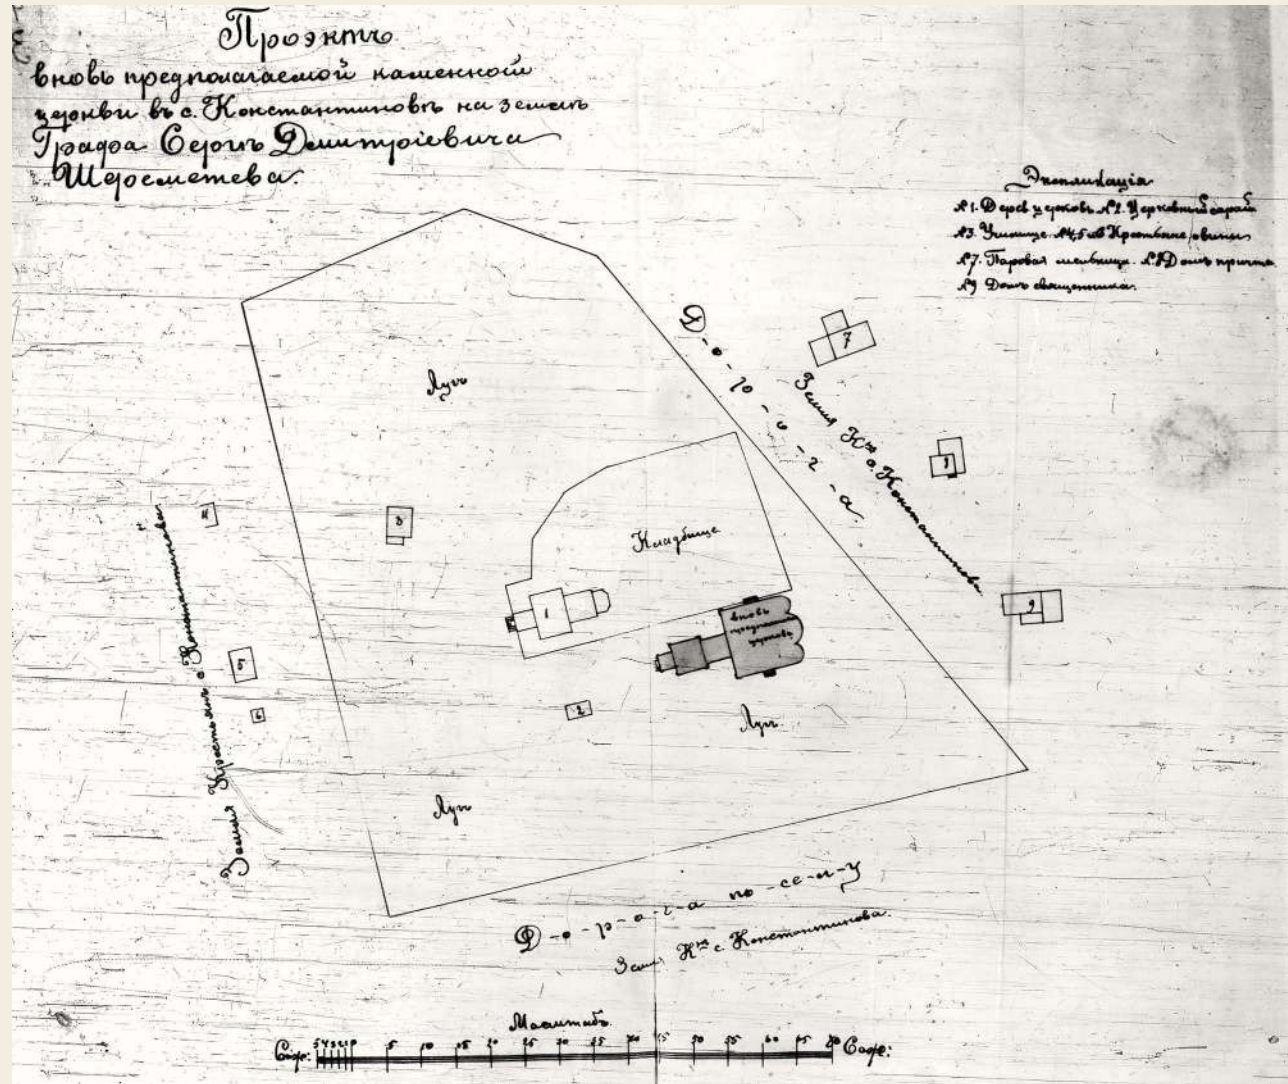 Проэктъ
вновь предполагаемой каменной
церкви въ с. Константиновѣ на землѣ
Графа Сергѣя Дмитріевича
Шереметева.
Экспликація
№1. Дерев церковь №2. Церковный сарай
№3. Училище. №4,5 и 6 Крестьянс овины
№7. Паровая мельница. №8 Домъ причта
№9 Домъ священника.
Лугъ
Д-о-р-о-г-а
7
Земля Кнъ с. Константинова
8
9
4
3
Кладбище
1
вновь
церковь
5
6
2
Лугъ
Лугъ
Земля Крестьянъ с. Константинова
Д-о-р-о-г-а по-се-л-у
Земля Кнъ с. Константинова.
Масштабъ
Саж: 5 4 3 2 1 0 5 10 15 20 25 30 35 40 45 50 55 60 65 70 Саж: